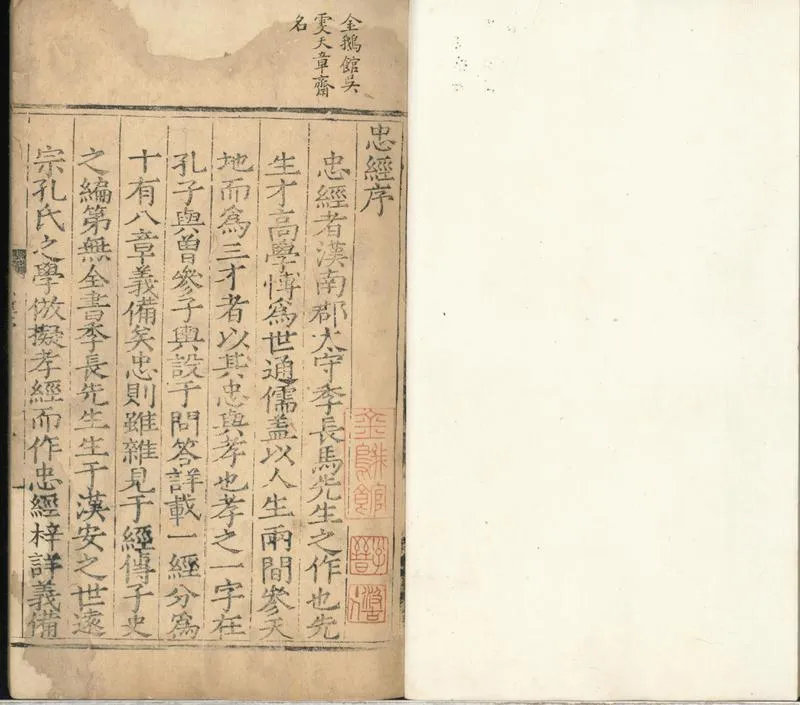 金鵝館吳
雯天章齋
名
忠經序
忠經者漢南郡太守季長馬先生之作也先
生才高學博爲世通儒蓋以人生兩間參天
地而爲三才者以其忠與孝也孝之一字在
孔子與曾參子輿設于問答詳載一經分爲
十有八章義備矣忠則雖雜見于經傳子史
之編第無全書季長先生生于漢安之世遠
宗孔氏之學倣擬孝經而作忠經梓詳義備